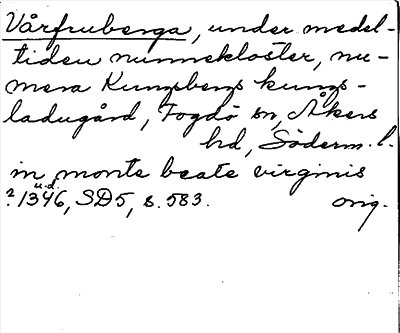 Vårfruberga, under medel-
tiden nunnekloster, nu-
mera Kungsbergs kungs-
ladugård, Fogdö sn, Åkers
hd, Söderm. l.
in monte beate virginis
u.d.
? 1346, SD5, s. 583. orig.